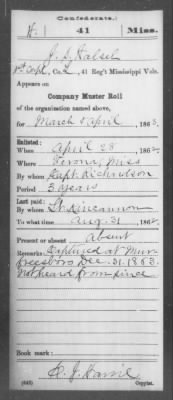 Confederate.
H. 41 Miss.
J. D. Halsel
1st Copl., Co. L, 41 Reg't Mississippi Vols.
Appears on
Company Muster Roll
of the organization named above,
for March & April, 1863.
Enlisted:
When April 28, 1862.
Where Verona, Miss
By whom Capt. Richardson
Period 3 years
Last paid:
By whom Lt. Kincannon
To what time Aug. 31, 1862.
Present or absent Absent
Remarks: Captured at Mur-
freesboro Dec. 31. 1863.
Not heard from since
Book mark:
(642) Copyist.